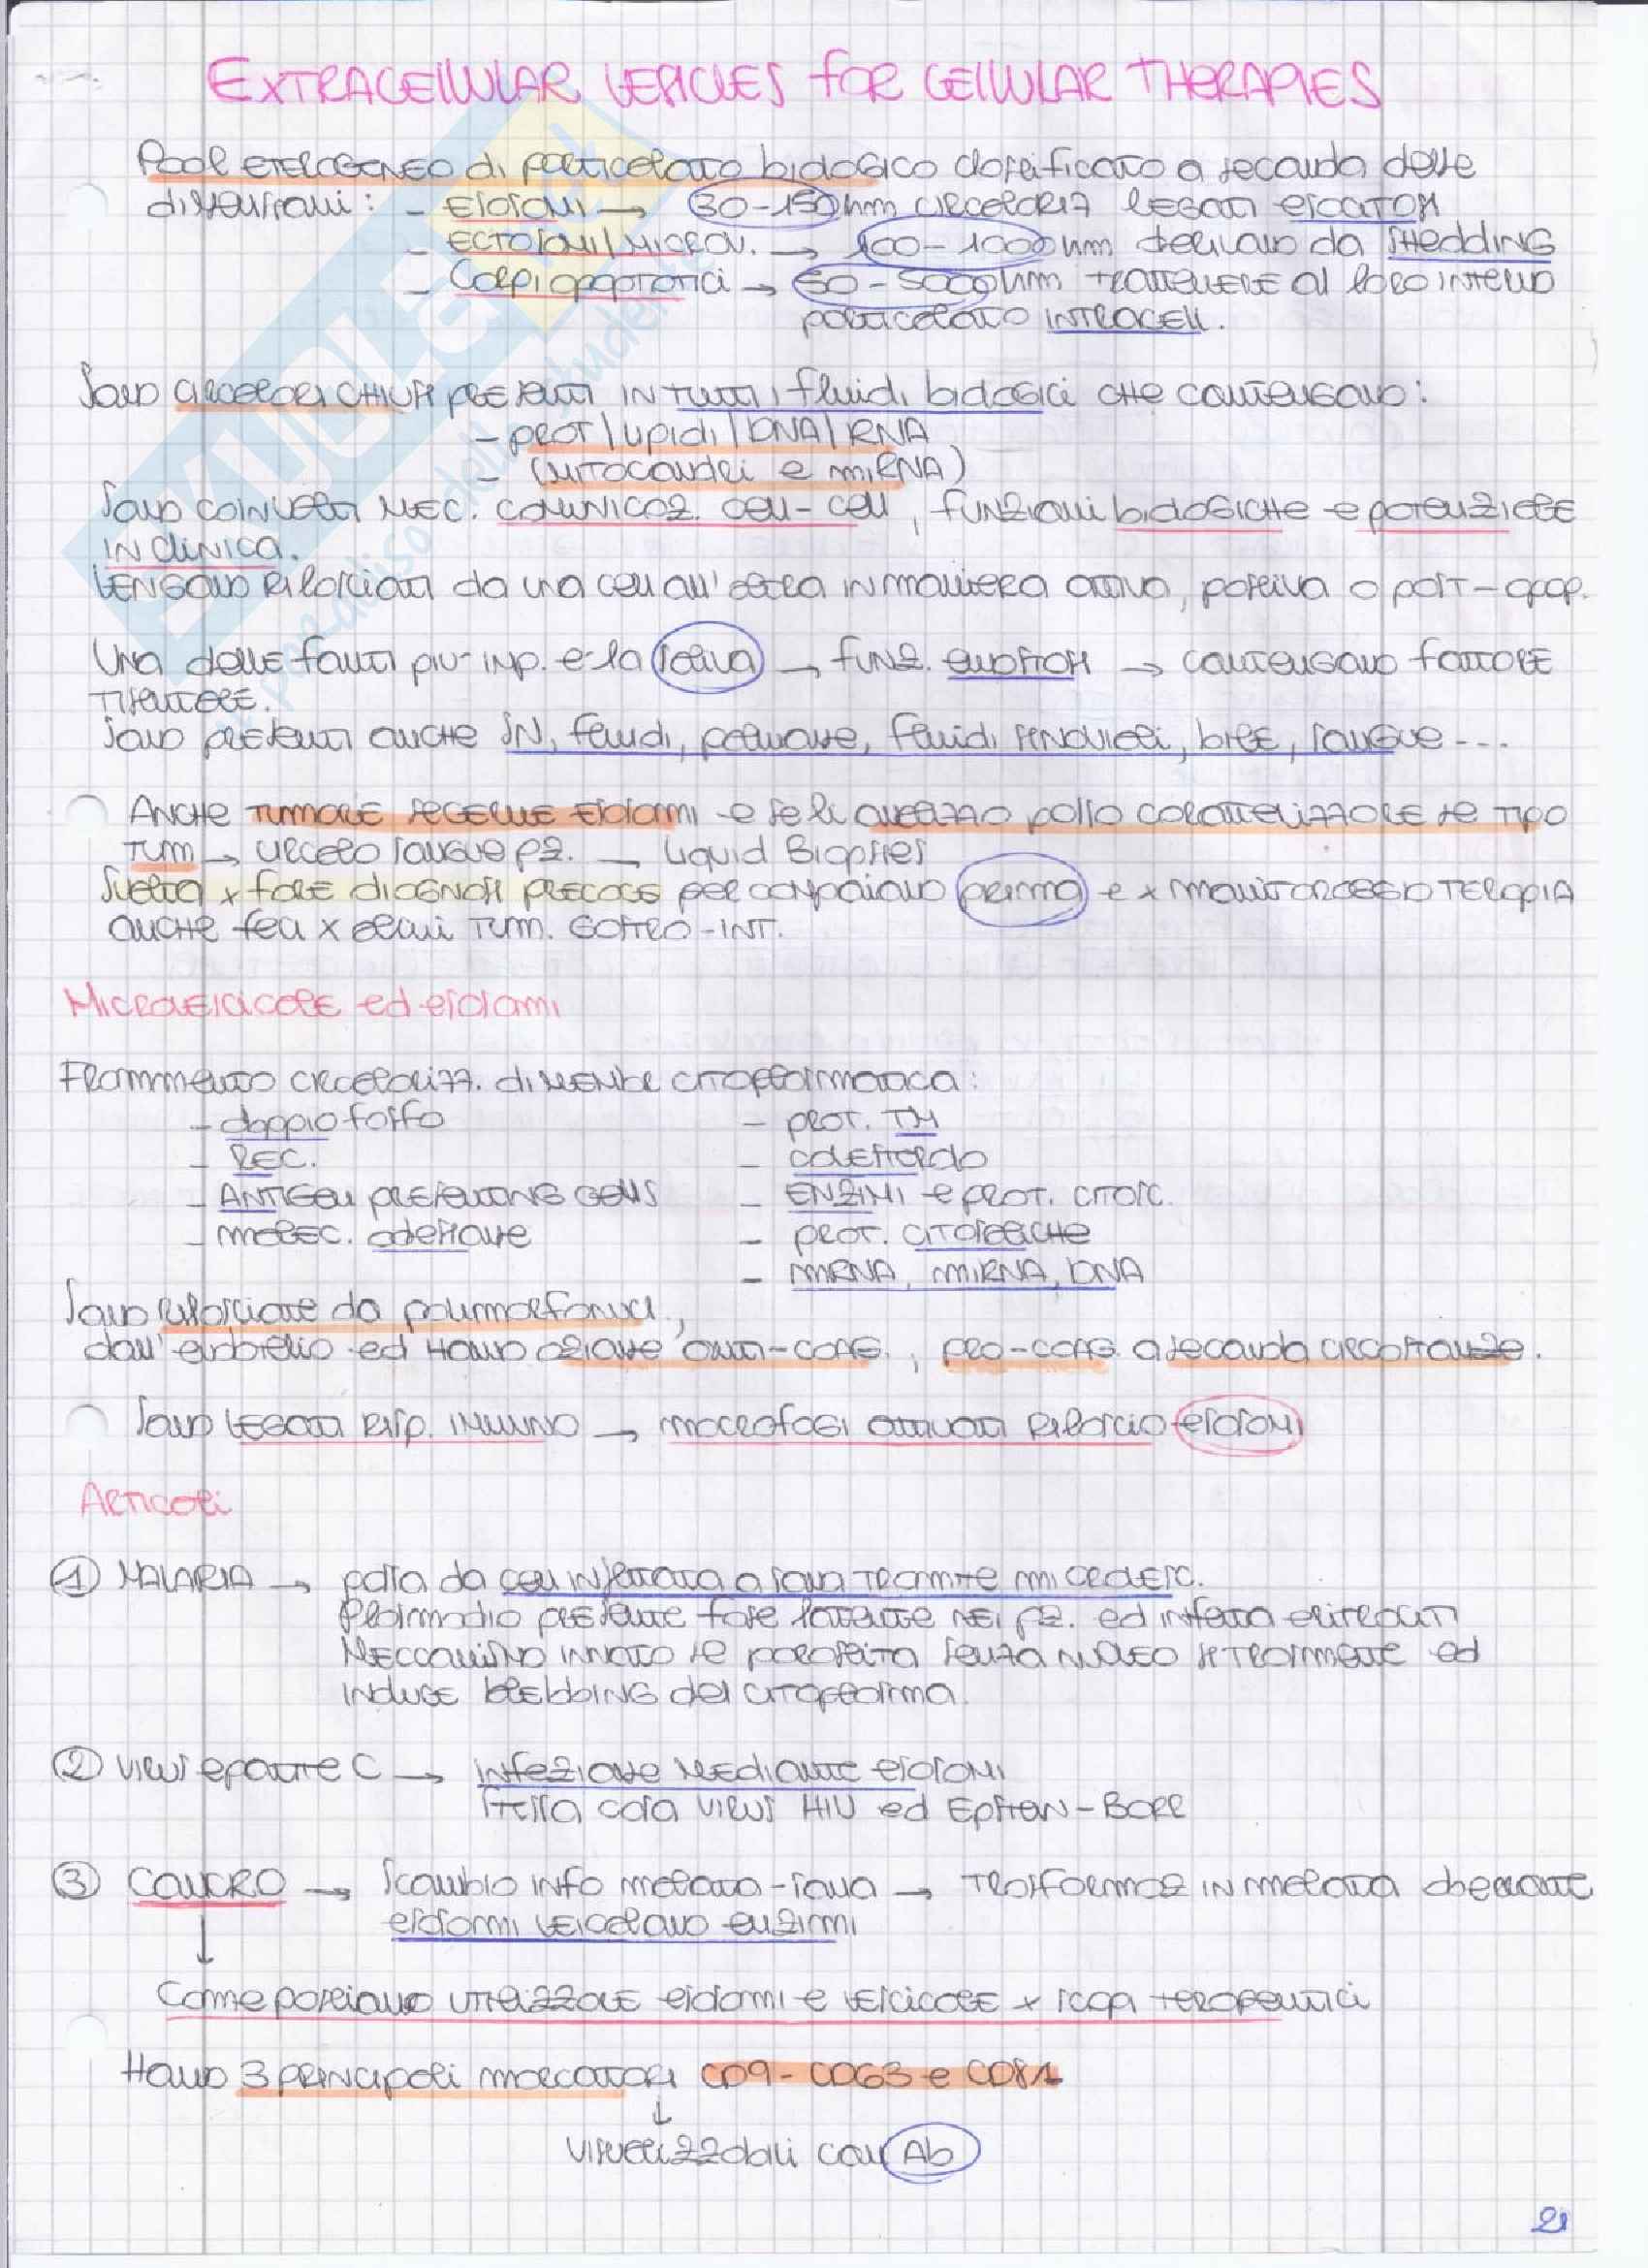 EXTRACELLULAR VESICLES FOR CELLULAR THERAPIES
Pool ETEROGENEO di particolato biologico classificato a seconda delle
dimensioni: - ESOSOMI → 30-150 nm CIRCOLARIZ LEGATI ESOCITOSI
- ECTOSOMI/MICROV. → 100-1000 nm derivano da SHEDDING
- Corpi apoptotici → 50-5000 nm TRATTENERE al loro interno
particolato INTRACELL.
Sono circolari CHIUSI presenti IN TUTTI i fluidi biologici CHE CONTENGONO:
- PROT / lipidi / DNA / RNA
- (MITOCONDRI e miRNA)
Sono coinvolti MEC. COMUNICAZ. cell-cell, FUNZIONI biologiche e potenziale
IN CLINICA.
VENGONO RILASCIATI da una cell all'altra IN MANIERA attiva, passiva o post-apop.
Una delle fonti piu' imp. e' la saliva → FUNZ. EMOSTASI → CONTENGONO fattore
TISSUTALE.
Sono presenti anche SN, fluidi, polmone, fluidi SINOVIALI, bile, sangue ---
Anche TUMORE SECERNE ESOSOMI e se li analizzo posso caratterizzare se TIPO
TUM → circolo sangue pz. → Liquid Biopsies
Svelta x fare diagnosi precoce per compaiono prima e x MONITORAGGIO TERAPIA
anche feci x alcuni TUM. GASTRO-INT.
MICROVESCICOLE ed esosomi
Frammento circolarizz. di MEMBR citoplasmatica:
- doppio fosfo
- PROT. TM
- REC.
- COLESTEROLO
- ANTIGEN PRESENTING CELLS
- ENZIMI e PROT. CITOSC.
- molec. adesione
- PROT. CITOSOLICHE
- mRNA, miRNA, DNA
Sono rilasciate da polimorfonucl.,
dall'endotelio ed HANNO azione anti-coag., pro-coag. a seconda circostanze.
Sono LEGATI RISP. IMMUNO → macrofagi attivati rilascio esosomi
Articoli
① MALARIA → passa da cell infettata a sana tramite microvesc.
Plasmodio presente fase latente NEI pz. ed infetta eritrociti
Meccanismo innato se parassita senza nucleo si trasmette ed
induce blebbing del citoplasma.
② Virus epatite C → infezione mediante esosomi
stessa cosa virus HIV ed Epstein-Barr
③ CANCRO → Scambio info malata-sana → TRASFORMAZ IN malata
esosomi veicolano enzimi
↓
Come possiamo utilizzare esosomi e vescicole x scopi terapeutici
Hanno 3 principali marcatori CD9 - CD63 e CD81
↓
visualizzabili con Ab
21